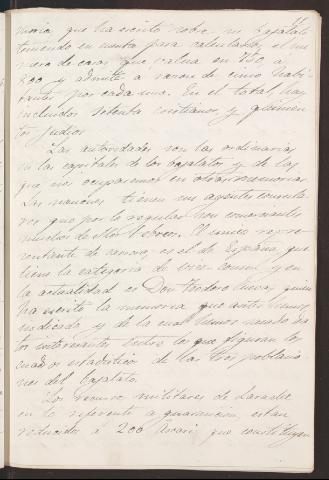 moria que ha escrito sobre su bajalato
teniendo en cuenta para calcularlos el nu
mero de casas que valua en 750 a
800 y admite a razon de cinco habi
tantes por cada una. En el total hay
incluidos setenta cristianos y quinien
tos judios
Las autoridades son las ordinarias
en las capitales de los bajalatos y de las
que nos ocuparemos en otras memorias
Las naciones tienen sus agentes consula
res que por lo regular son comerciantes
muchos de ellos hebreos. El unico repre
sentante de carrera es el de España que
tiene la categoria de vice consul y en
la actualidad es Don Teodoro Cuevas quien
ha escrito la memoria que antes hemos
indicado y de la cual hemos sacado da
tos interesantes entre los que figuran los
cuadros estadisticos de las tres poblacio
nes del bajalato.
Los recursos militares de Larache
en lo referente a guarnicion, estan
reducidos a 200 Ascari que constituyen